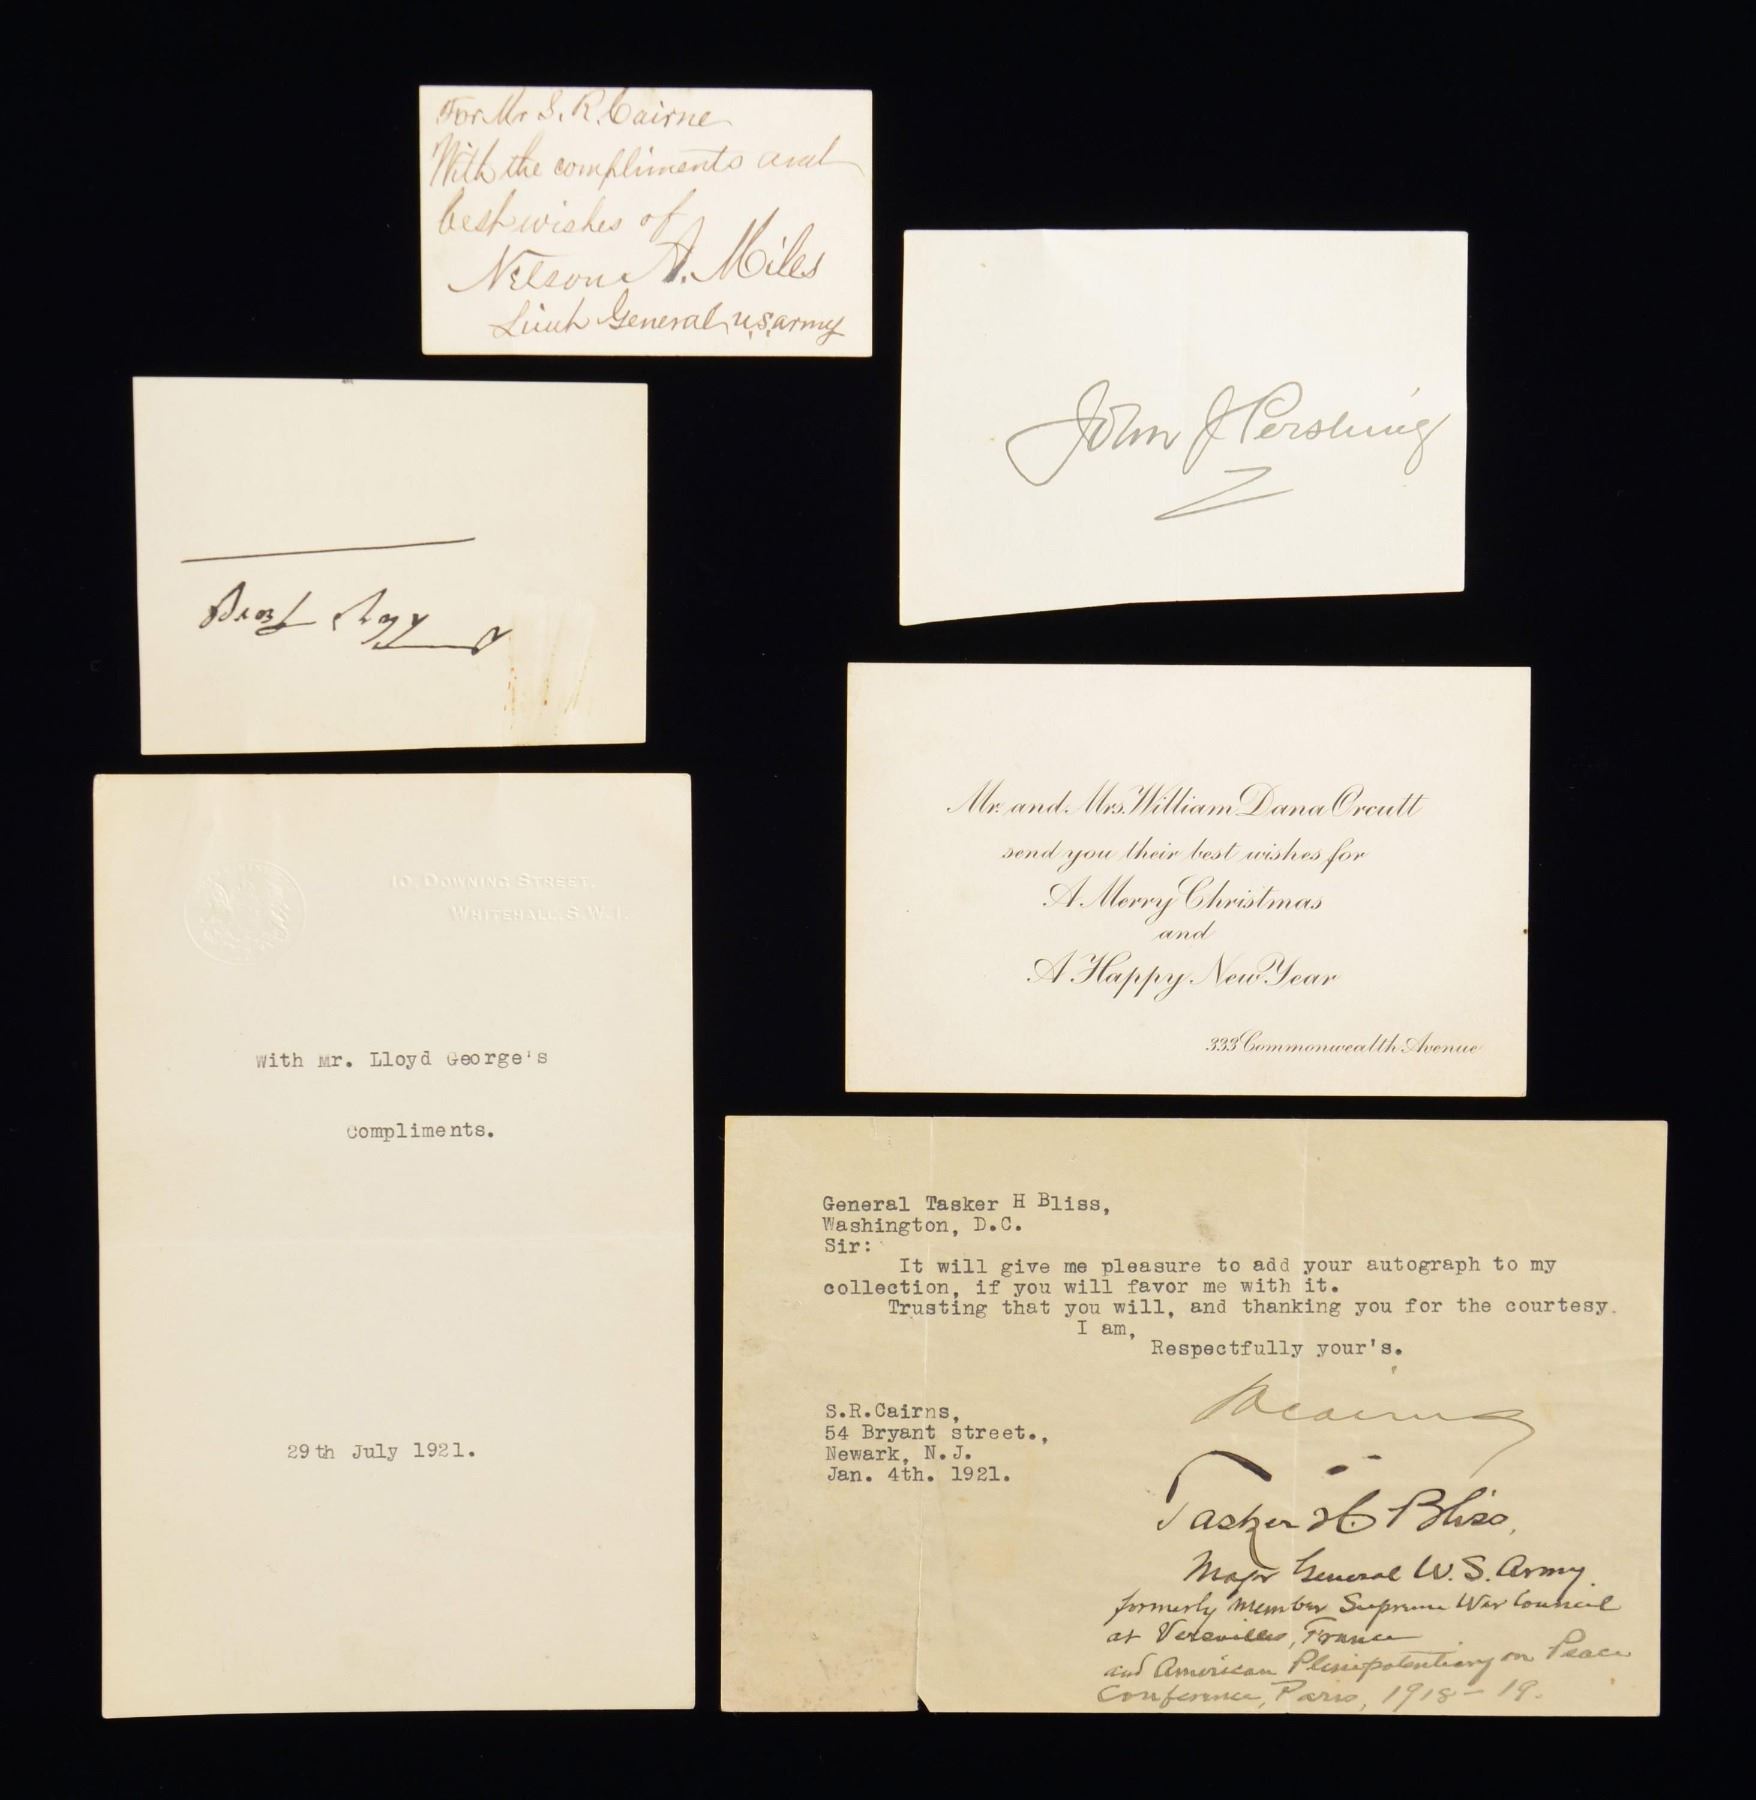 For Mr S. R. Cairne
With the compliments and
best wishes of
Nelson A. Miles
Lieut General, U.S. army
John J Pershing
Mr. and Mrs. William Dana Orcutt
send you their best wishes for
A Merry Christmas
and
A Happy New Year
333 Commonwealth Avenue
10, DOWNING STREET,
WHITEHALL, S.W.1.
With Mr. Lloyd George's
Compliments.
29th July 1921.
General Tasker H Bliss,
Washington, D.C.
Sir:
It will give me pleasure to add your autograph to my
collection, if you will favor me with it.
Trusting that you will, and thanking you for the courtesy.
I am,
Respectfully your's.
S.R.Cairns,
54 Bryant street.,
Newark, N.J.
Jan. 4th. 1921.
SRCairns
Tasker H. Bliss,
Major General U.S. Army.
formerly member Supreme War Council
at Versailles, France
and American Plenipotentiary on Peace
Conference, Paris, 1918-19.